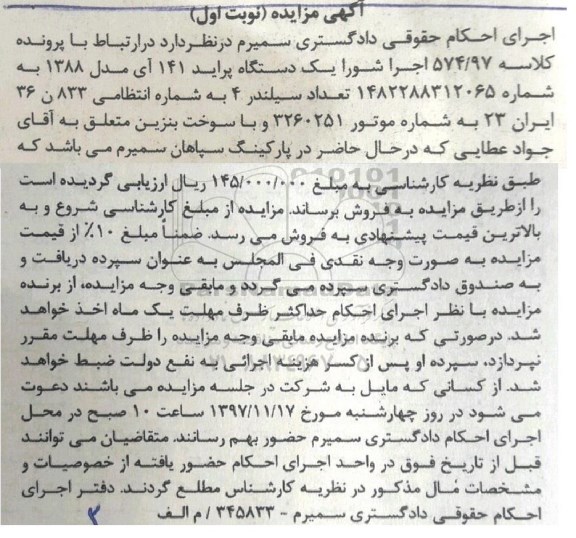 آگهی مزایده (نوبت اول)
اجرای احکام حقوقی دادگستری سمیرم درنظردارد درارتباط با پرونده
کلاسه ۵۷۴/۹۷ اجرا شورا یک دستگاه پراید ۱۴۱ آی مدل ۱۳۸۸ به
شماره ۱۴۸۲۲۸۸۳۱۲۰۶۵ تعداد سیلندر ۴ به شماره انتظامی ۸۳۳ ن ۳۶
ایران ۲۳ به شماره موتور ۳۲۶۰۲۵۱ و با سوخت بنزین متعلق به آقای
جواد عطایی که درحال حاضر در پارکینگ سپاهان سمیرم می باشد که
طبق نظریه کارشناسی به مبلغ ۱۴۵/۰۰۰/۰۰۰ ریال ارزیابی گردیده است
را ازطریق مزایده به فروش برساند. مزایده از مبلغ کارشناسی شروع و به
بالاترین قیمت پیشنهادی به فروش می رسد. ضمناً مبلغ ۱۰٪ از قیمت
مزایده به صورت وجه نقدی فی المجلس به عنوان سپرده دریافت و
به صندوق دادگستری سپرده می گردد و مابقی وجه مزایده، از برنده
مزایده با نظر اجرای احکام حداکثر ظرف مهلت یک ماه اخذ خواهد
شد. درصورتی که برنده مزایده مابقی وجه مزایده را ظرف مهلت مقرر
نپردازد، سپرده او پس از کسر هزینه اجرائی به نفع دولت ضبط خواهد
شد. از کسانی که مایل به شرکت در جلسه مزایده می باشند دعوت
می شود در روز چهارشنبه مورخ ۱۳۹۷/۱۱/۱۷ ساعت ۱۰ صبح در محل
اجرای احکام دادگستری سمیرم حضور بهم رسانند. متقاضیان می توانند
قبل از تاریخ فوق در واحد اجرای احکام حضور یافته از خصوصیات و
مشخصات مال مذکور در نظریه کارشناس مطلع گردند. دفتر اجرای
احکام حقوقی دادگستری سمیرم - ۳۴۵۸۳۳ / م الف